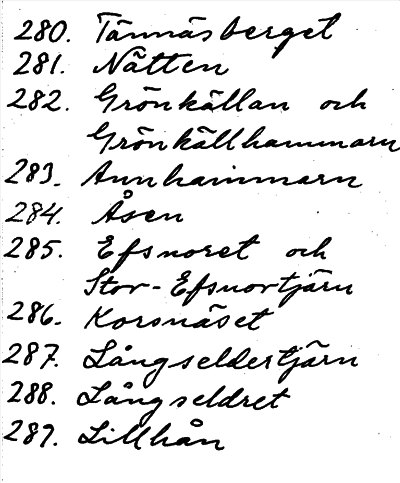 280. Tännäsberget
281. Nätten
282. Grönkällan och
Grönkällhammarn
283. Annhammarn
284. Åsen
285. Efsnoret och
Stor-Efsnortjärn
286. Korsnäset
287. Långseldertjärn
288. Långseldret
289. Lillhån